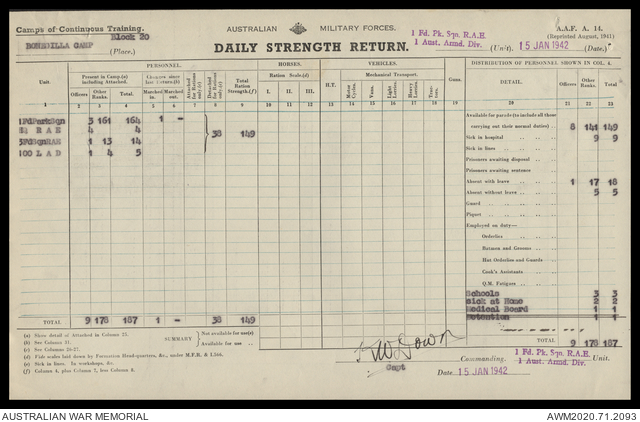 Camps of Continuous Training.
Block 20
BONEGILLA CAMP
(Place.)
AUSTRALIAN MILITARY FORCES.
DAILY STRENGTH RETURN.
1 Fd. Pk. Sqn. R.A.E.
1 Aust. Armd. Div.
(Unit).
15 JAN 1942
(Date.)
A.A.F. A. 14.
(Reprinted August, 1941)
PERSONNEL. HORSES. VEHICLES. DISTRIBUTION OF PERSONNEL SHOWN IN COL. 4.
Unit. Present in Camp.(a) including Attached. Changes since last Return.(b) Attached for Rations only.(c) Detached for Rations only.(d) Total Ration Strength.(f) Ration Scale.(d) H.T. Mechanical Transport. Guns. DETAIL. Officers Other Ranks. Total
Officers Other Ranks. Total Marched in. Marched out. I. II. III. I. II. III. Motor Cycles. Vans. Light Lorries. Heavy Lorries. Trac-tors.
1 2 3 4 5 6 7 8 9 10 11 12 13 14 15 16 17 18 19 20 21 22 23
1FdParkSqn 3 161 164 1 -
R A E 4
RAE 1 13 14
100 L A D 1 4 5
38 149
Available for parade (to include all those
carrying out their normal duties) 8 141 149
Sick in hospital 9 9
Sick in lines
Prisoners awaiting disposal
Prisoners awaiting sentence
Absent with leave 1 17 18
Absent without leave 5 5
Guard
Piquet
Employed on duty—
Orderlies
Batmen and Grooms
Hut Orderlies and Guards
Cook's Assistants
Q.M. Fatigues
Schools 3 3
Sick at Home 2 2
Medical Board 1 1
Detention 1 1
TOTAL 9 178 187 1 - 38 149
TOTAL 9 178 187
(a) Show detail of Attached in Column 25.
(b) See Column 31.
(c) See Columns 26-27.
(d) Vide scales laid down by Formation Head-quarters, &c., under M.F.R. & I.
(e) Sick in lines. In workshops, &c.
(f) Column 4, plus Column 7, less Column 8.
SUMMARY
Not available for use(e)
Available for use
Capt
Commanding
1 Fd. Pk. Sqn. R.A.E.
1 Aust. Armd. Div.
Unit.
Date 15 JAN 1942
AUSTRALIAN WAR MEMORIAL
AWM2020.71.2093